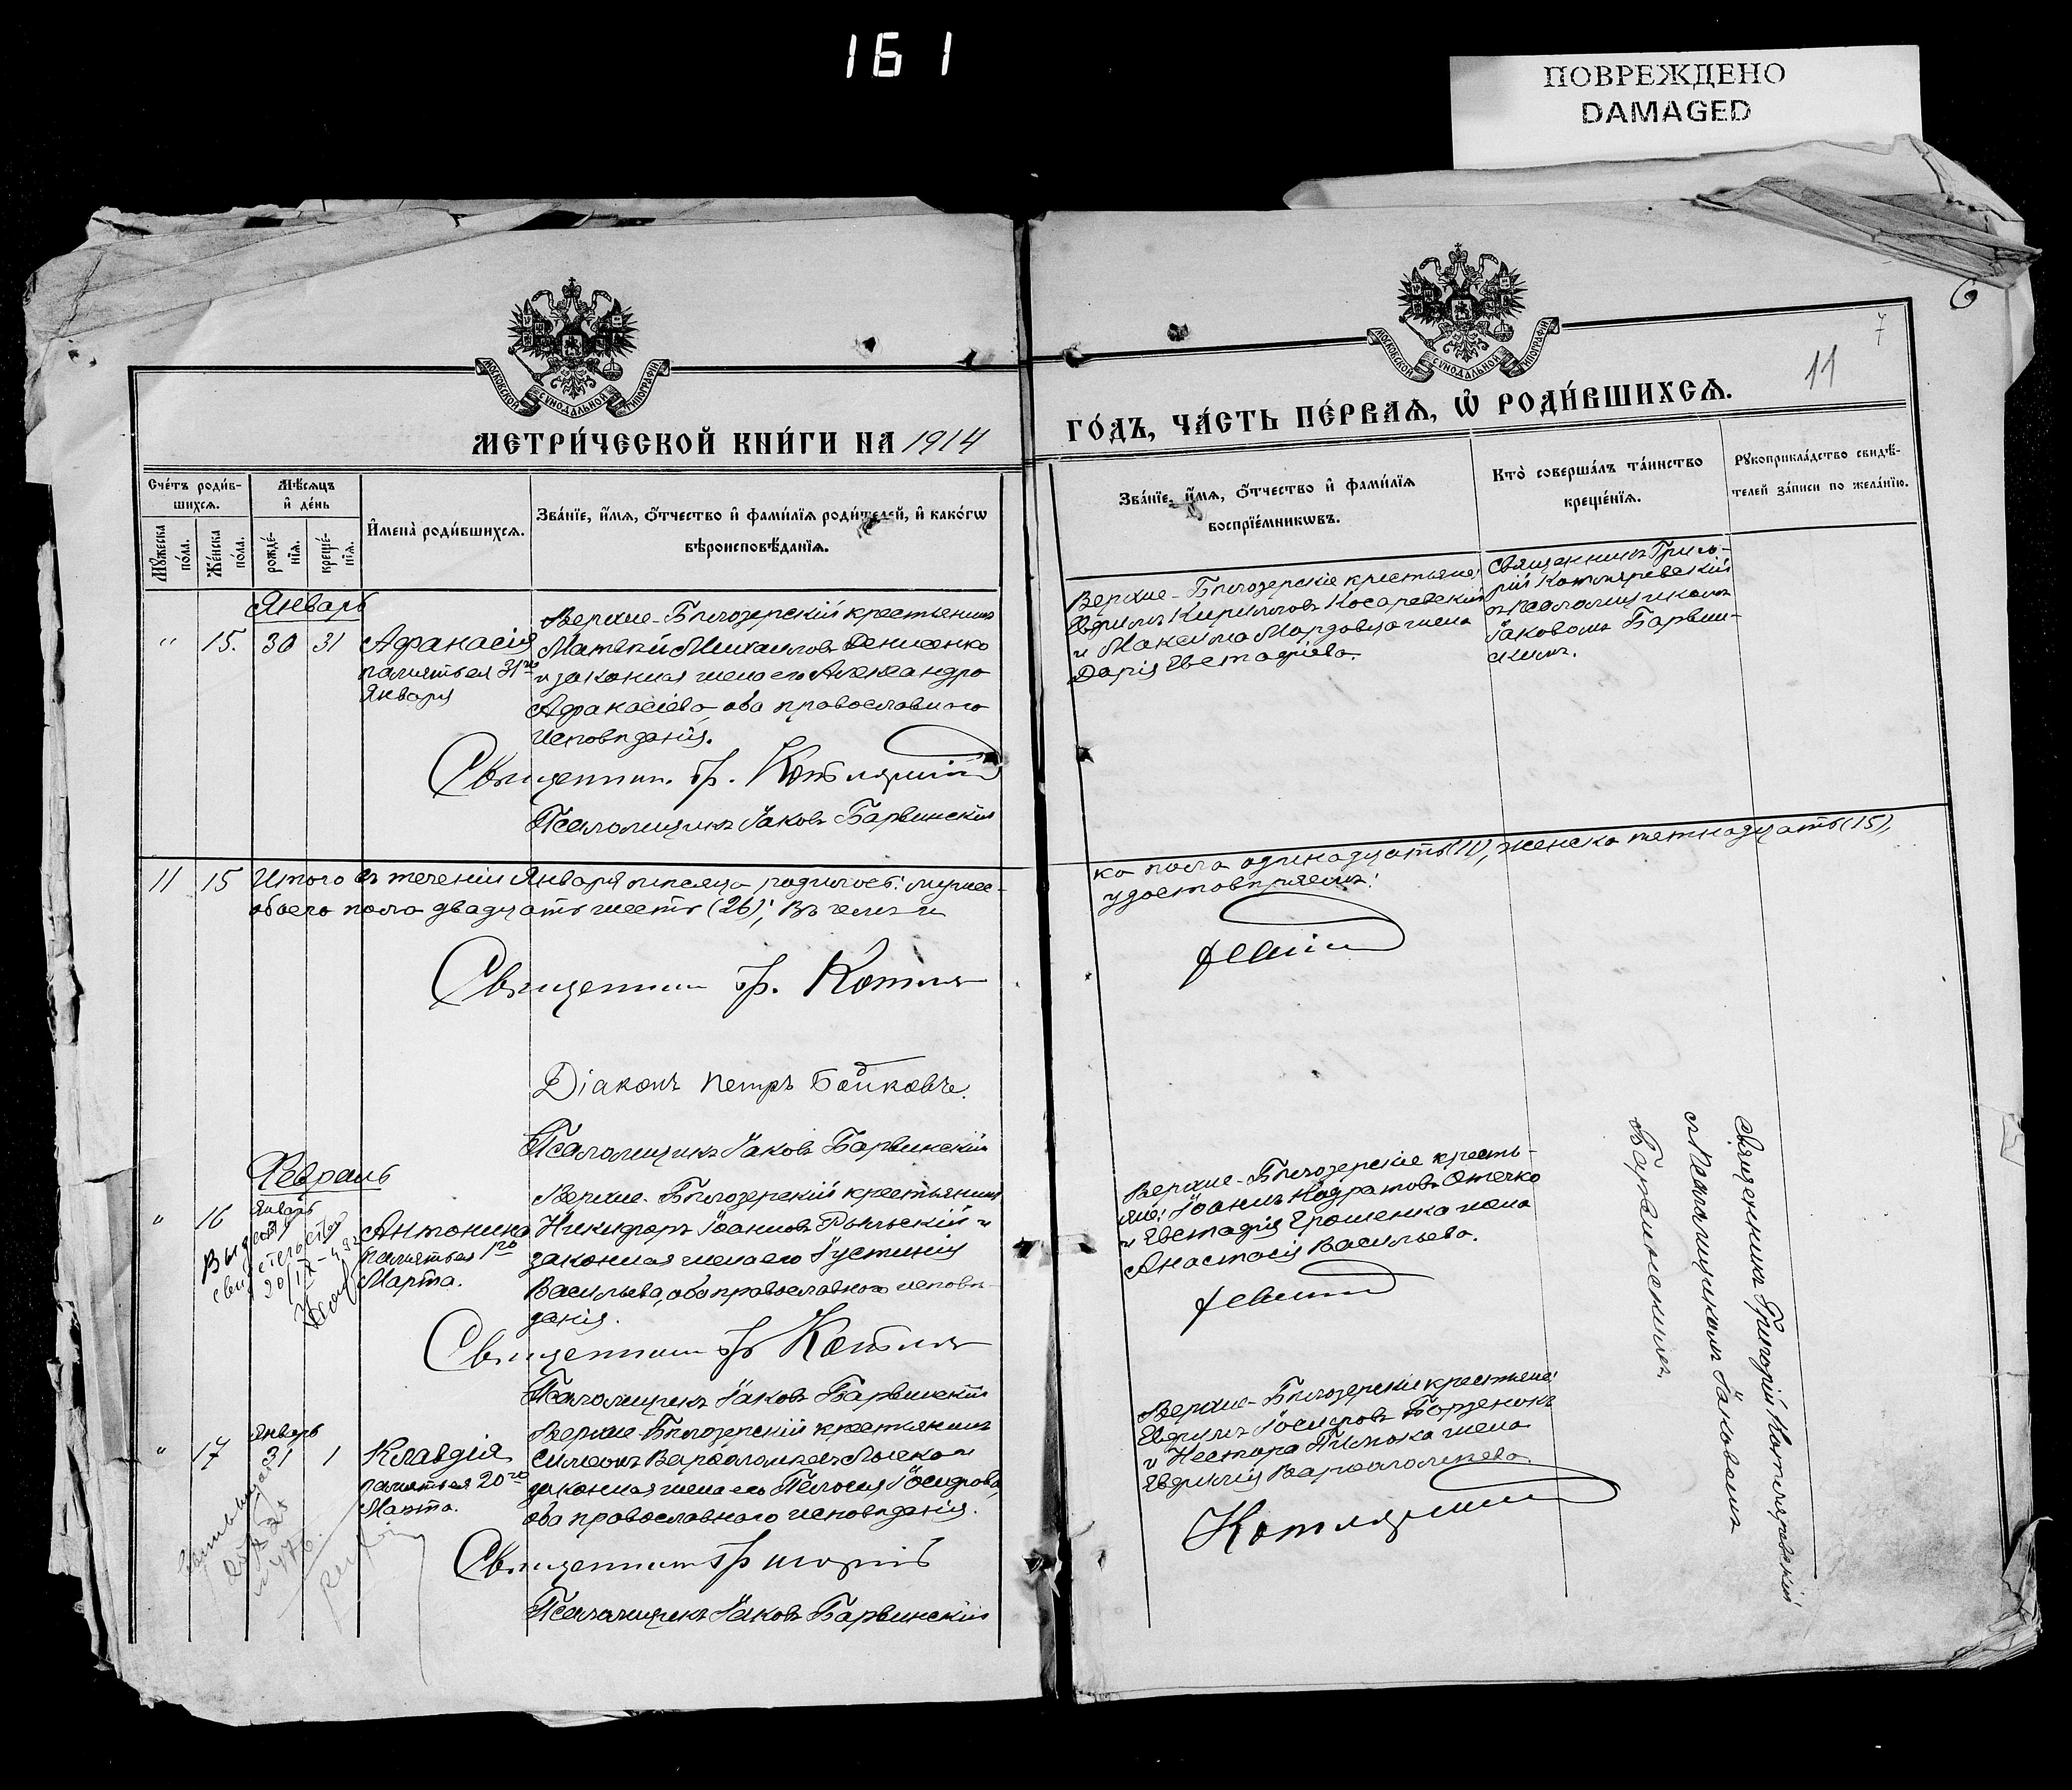 161
ПОВРЕЖДЕНО
DAMAGED
6
7
11
МОСКОВСКОЙ СѴНОДАЛЬНОЙ ТИПОГРАФІИ
МОСКОВСКОЙ СѴНОДАЛЬНОЙ ТИПОГРАФІИ
МЕТРИ́ЧЕСКОЙ КНИ́ГИ НА 1914
ГО́ДЪ, ЧА́СТЬ ПЕ́РВАѦ, Ѡ҆ РОДИ́ВШИХСѦ.
Сче́тъ роди́в-
шихсѧ.
Мѣ́сѧцъ
и҆ де́нь
Мꙋ́жеска
по́ла.
Же́нска
по́ла.
рожде́-
нїѧ.
креще́-
нїѧ.
И҆мена̀ роди́вшихсѧ.
Зва́нїе, и҆́мѧ, ѻ҆́тчество и҆ фами́лїѧ роди́телей, и҆ како́гѡ
вѣроисповѣ́данїѧ.
Зва́нїе, и҆́мѧ, ѻ҆́тчество и҆ фами́лїѧ
воспрїе́мникѡвъ.
Кто̀ соверша́лъ та́инство
креще́нїѧ.
Рꙋкоприкла́дство свидѣ́-
телей за́писи по жела́нїю.
Январь
" 15. 30 31
Афанасія
память ея 31го
Января
Верхне-Бѣлозерскій крестьянинъ
Матвѣй Михаиловъ Денисенко
и законная жена его Александра
Афанасіева, оба православнаго
исповѣданія.
Священник Гр. Котляревскій
Псаломщикъ Іаковъ Барвинскій
Верхне-Бѣлозерскіе крестьяне:
Ефимъ Кирилловъ Косаревскій
и Максима Мардовца жена
Дарія Евстафіева.
Священникъ Григо-
рій Котляревскій
съ псаломщикомъ
Іаковомъ Барвин-
скимъ.
11 15 Итого въ теченіи Января мѣсяца родилось: мужес-
ка пола одинадцать (11), женска пятнадцать (15),
обоего пола двадцать шесть (26); въ чемъ и
удостовѣряемъ:
Священник Гр. Котля
ревскій
Діаконъ Петръ Бойковъ.
Псаломщикъ Іаковъ Барвинскій
Февраль
" 16
Январь
Выдано
свидетельство
20/IX-
Антонина
память ея 1го
Марта.
Верхне-Бѣлозерскій крестьянинъ
Никифоръ Іоанновъ Рыльскій и
законная жена его Іустинія
Васильева, оба православнаго исповѣ-
данія.
Священник Гр Котля
ревскій
Псаломщикъ Іаковъ Барвинскій
Верхне-Бѣлозерскіе кресть-
яне: Іоаннъ Кодратовъ Отечко
и Евстафія Ерошенка жена
Анастасія Васильева.
Священникъ Григорій Котляревскій
съ Псаломщикомъ Іаковомъ
Барвинскимъ
Январь
" 17 31 1
Клавдія
память ея 20го
Марта.
Верхне-Бѣлозерскій крестьянинъ
Симеонъ Варѳоломеевъ Лысенко и
законная жена его Пелагія Іосифова,
оба православнаго исповѣданія.
Священник Григорій
Котляревскій
Псаломщикъ Іаковъ Барвинскій
Верхне-Бѣлозерскіе крестьяне:
Ефимъ Іосифовъ Борзенокъ
и Нестора Пилипока жена
Евфимія Варѳоломеева.